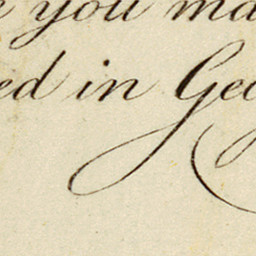 you ma
ed in Geo